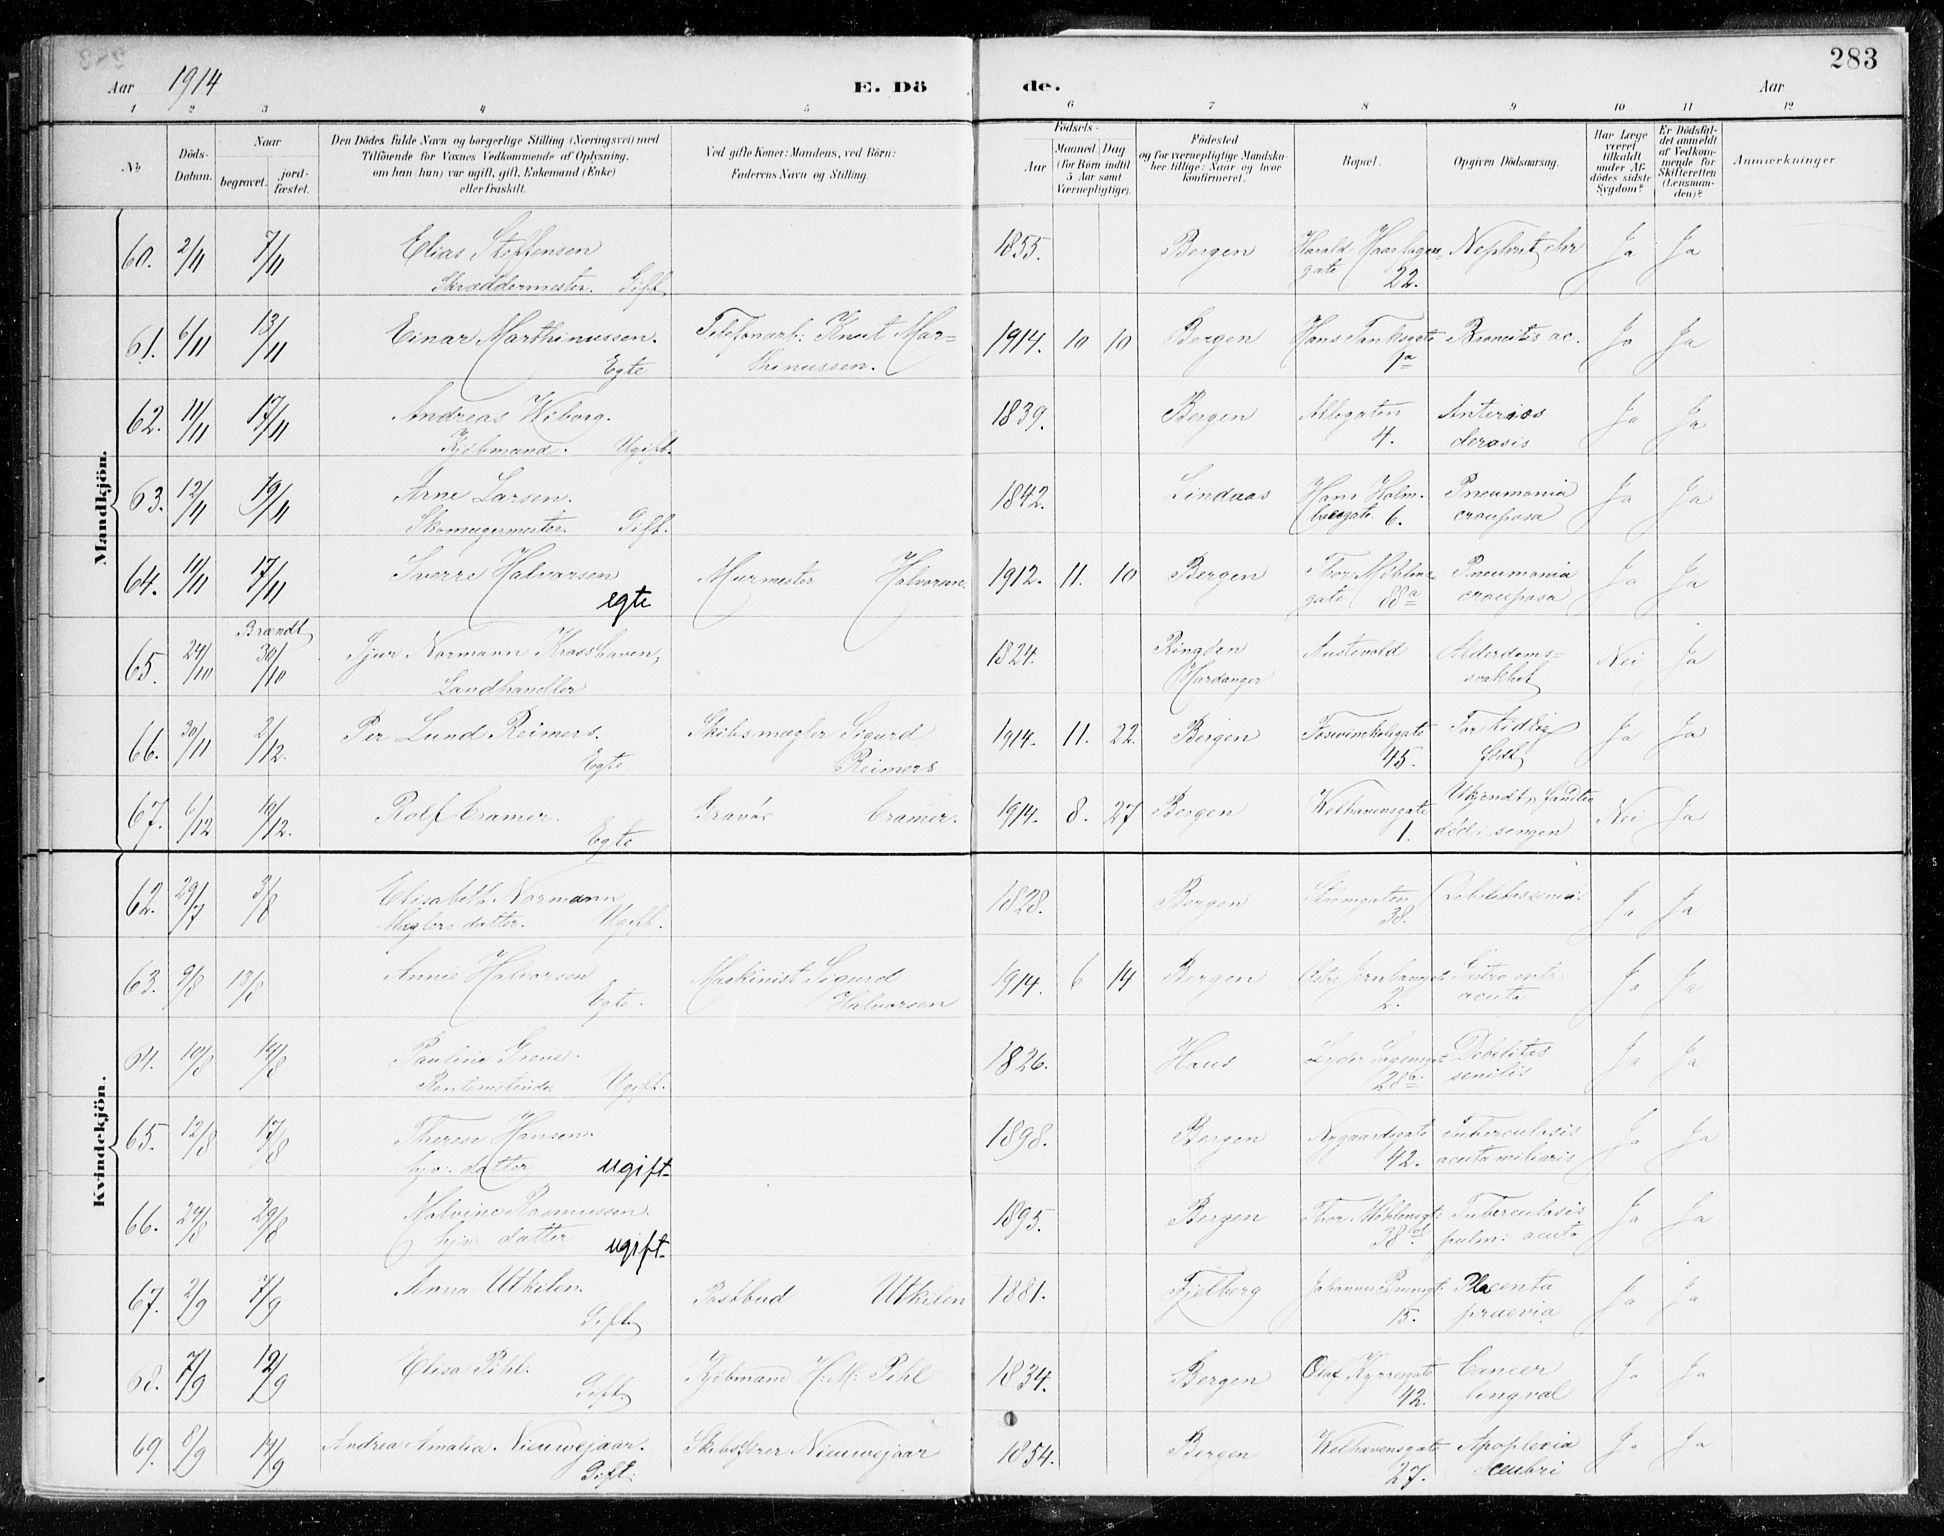 283
Aar 1914
E. Dö
de.
Aar
1 2 3 4 5 6 7 8 9 10 11 12
No
Döds-Datum.
Naar
begravet.
jord-fæstet.
Den Dödes fulde Navn og borgerlige Stilling (Næringsvei) med
Tilföiende for Voxnes Vedkommende af Oplysning,
om han (hun) var ugift, gift, Enkemand (Enke)
eller fraskilt.
Ved gifte Koner: Mandens, ved Börn:
Faderens Navn og Stilling.
Födsels-
Aar
Maaned Dag
(for Börn indtil
5 Aar samt
Værnepligtige).
Födested
og for værnepligtige Mandska-
ber tillige: Naar og hvor
konfirmeret.
Bopæl.
Opgiven Dödsaarsag.
Har Læge
været
tilkaldt
under Af-
dödes sidste
Sygdom?
Er Dödsfal-
det anmeldt
af Vedkom-
mende for
Skifteretten
(Lensman-
den)?
Anmærkninger.
Mandkjön.
60. 2/11 7/11 Elias Steffensen 1855. Bergen Harald Haarfagers- Nephrit chr Ja Ja
Skræddermester. Gift gate 22.
61. 6/11 13/11 Einar Marthinussen. Telefonarb: Knut Mar- 1914. 10 10 Bergen Hans Tanksgate Bronchitis ac. Ja Ja
Egte thinussen. 1a
62. 11/11 17/11 Andreas Wiborg. 1839. Bergen Allegaten Anterios Ja Ja
Kjöbmand. Ugift. 4. derosis
63. 12/11 19/11 Arne Larsen. 1842. Lindaas Hans Holm- Pneumonia Ja Ja
Skomagermester. Gift. boesgate 6. crouposa
64. 11/11 17/11 Sverre Halvorsen Murmester Halvorsen. 1912. 11. 10 Bergen Thor Möhlens- Pneumonia Ja Ja
egte gate 88a crouposa
Brændt
65. 24/10 30/10 Sjur Normann Krosshaven, 1824. Ringöen Austevold Alderdoms- Nei Ja
Landhandler Hardanger svakhet
66. 30/11 2/12. Per Lund Reimers. Skibsmægler Sigurd 1914. 11. 22. Bergen Fosswinckelsgate For tidlig Ja Ja
Egte Reimers 45. födt
67. 6/12 10/12. Rolf Cramer. Gravör Cramer. 1914. 8. 27 Bergen Welhavensgate Ukjendt, fandtes Nei Ja
Egte 1. död i sengen
Kvindekjön.
62. 29/7 3/8 Elisabeth Normann 1828. Bergen Strömgaten Debilitas senil: Ja Ja
Mæglers datter. Ugift. 38.
63. 9/8 13/8 Annie Halvorsen Maskinist Sigurd 1914. 6 14 Bergen Östre Jernbanegt. Gastro ente- Ja Ja
Egte. Halvorsen 2. acuta
64. 10/8 14/8 Pauline Greve. 1826. Haus Lyder Sagensgt. Debilitas Ja Ja
Rentenistinde. Ugift. 28b. senilis
65. 12/8 17/8 Therese Hansen. 1898. Bergen Nygaardsgate Tuberculosis Ja Ja
hjv: datter ugift. 42. acuta miliaris
66. 24/8 29/8 Malvine Rasmussen. 1895. Bergen Thor Möhlensgt: Tuberculosis Ja Ja
hjv: datter ugift. 38. pulm: acuta
67. 2/9 7/9 Anna Utkilen. Postbud Utkilen 1881. Fjelberg Johannes Brunsgt. Placenta Ja Ja
Gift 15. praevia
68. 7/9 12/9 Elisa Pihl. Kjöbmand H: M: Pihl 1834. Bergen Olaf Kyrresgate Cancer Ja Ja
Gift 42. lingval
69. 8/9 14/9 Andrea Amalia Nieuwejaar. Skibsförer Nieuwejaar 1854. Bergen Welhavensgate Apoplexia Ja Ja
Gift. 27. cerebri